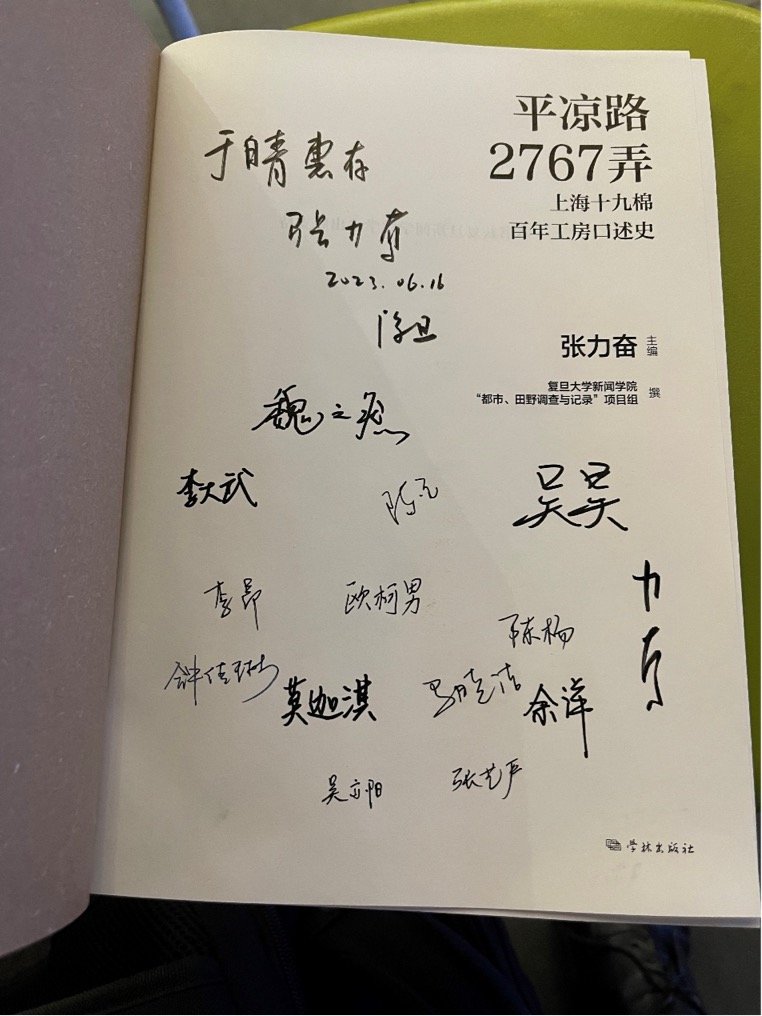 平凉路
2767弄
上海十九棉
百年工房口述史
张力奋 主编
复旦大学新闻学院
“都市、田野调查与记录”项目组 撰
于晴 惠存
张力奋
2023.06.16
魏之然
李大武
吴昊
李昂
欧柯男
陈杨
钟佳琳
莫迦淇
余洋
吴亦阳
张艺严
学林出版社